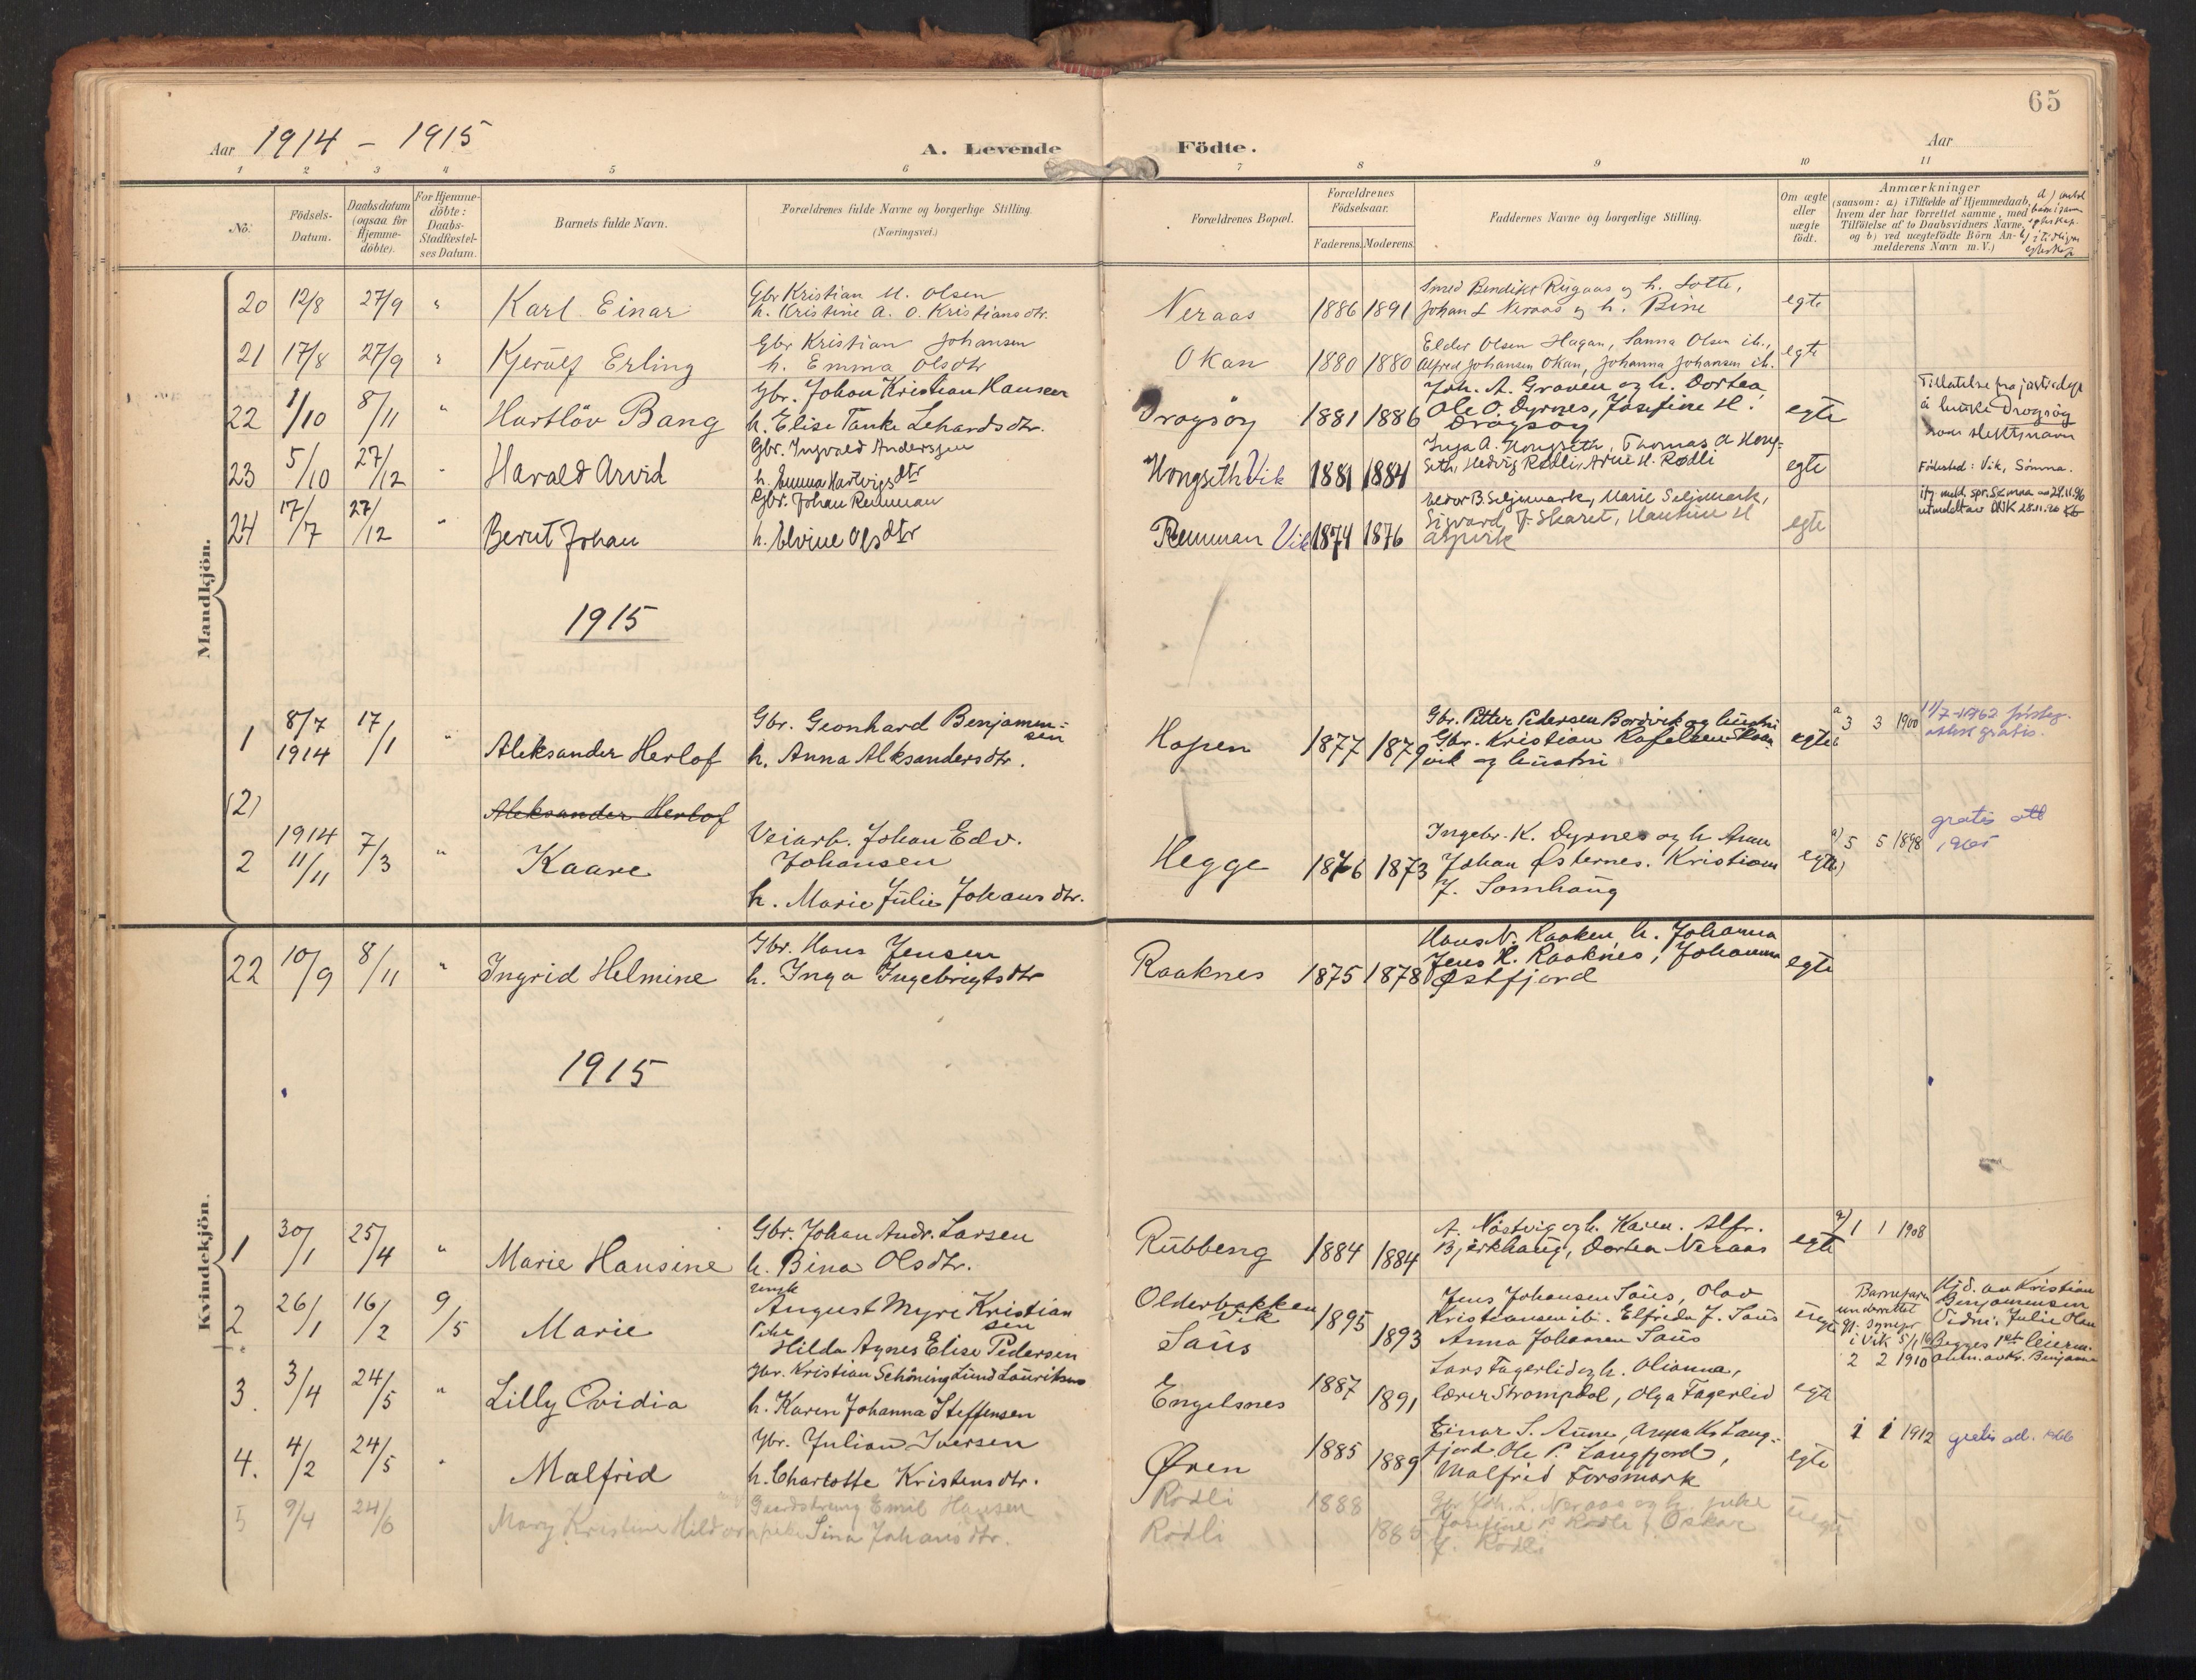 65
Aar 1914 - 1915
A. Levende Födte.
Aar
1 2 3 4 5 6 7 8 9 10 11
No.
Födsels-Datum.
Daabsdatum (ogsaa for Hjemme-döbte).
For Hjemme-döbte: Daabs-Stadfæstel-ses Datum.
Barnets fulde Navn.
Forældrenes fulde Navne og borgerlige Stilling.
(Næringsvei.)
Forældrenes Bopæl.
Forældrenes Födselsaar.
Faderens. Moderens.
Faddernes Navne og borgerlige Stilling.
Om ægte eller uægte födt.
Anmærkninger
(saasom: a) i Tilfælde af Hjemmedaab, hvem der har forrettet samme, med Tilföielse af to Daabsvidners Navne, og b) ved uægtefödte Börn An-melderens Navn m. V.)
Mandkjön.
20 12/8 27/9 " Karl Einar
Gbr Kristian M. Olsen
h. Kristine A. O. Kristiansdtr.
Neraas 1886 1891
Smed Bendikt Rugaas og h. Lotte,
Johan L Neraas og h. Bine
egte
21 17/8 27/9 " Kjerulf Erling
Gbr Kristian Johansen
h. Emma Olsdtr
Okan 1880 1880
Elder Olsen Hagan, Sanna Olsen ib.,
Alfred Johansen Okan, Johanna Johansen ib.
egte
22 1/10 8/11 " Hartlöv Bang
Gbr. Johan Kristian Hansen
h. Elise Tanke Lehardsdtr.
Dragsöy 1881 1886
Joh. A. Graven og h. Dortea
Ole O. Dyrnes, Josefine H.
Dragsöy
egte
Tillatelse fra justisdep
å bruke Dragsöy
som slektsnavn
23 5/10 27/12 " Harald Arvid
Gbr. Ingvald Anderssen
h. Emma Hartvigsdtr
Hongseth Vik 1881 1884
Inga A. Hongseth, Thomas A Hong-
seth, Hedvig Rødli, Arne H. Rødli
egte
Födested: Vik, Sömna.
24 17/7 27/12 " Bernt Johan
Gbr. Johan Remman
h. Elvine Olsdtr
Remman Vik 1874 1876
Peder B. Seljemark, Marie Seljemark,
Sigvard J. Skaret, Hantine H
Aspvik
egte
1915
1 8/7 1914 17/1 " Aleksander Herlof
Gbr. Geonhard Benjamin-
sen
h. Anna Aleksandersdtr.
Hopen 1877 1879
Gbr. Petter Pedersen Bordvik og hustru
Gbr. Kristian Rafelsen
vik og hustru
egte
a 3 3 1900
11/7-1962
attest gratis.
(2) Aleksander Herlof
2 1914 11/11 7/3 " Kaare
Veiarb. Johan Edv.
Johansen
h. Marie Julie Johansdtr.
Hegge 1876 1873
Ingebr. K. Dyrnes og h. Anna
Johan Østernes. Kristiane
J. Somhaug
egte
a) 5 5 1898
gratis att
1965
Kvindekjön.
22 10/9 8/11 " Ingrid Helmine
Gbr. Hans Jensen
h. Inga Ingebrigtsdtr
Raaknes 1875 1878
Hans N. Raaken, h. Johanna
Jens H. Raaknes, Johanna
Østfjord
egte
1915
1 30/1 25/4 " Marie Hansine
Gbr. Johan Andr. Larsen
h. Bina Olsdtr.
Rubbeng 1884 1884
A. Nöstvig og h. Karen. Alfr.
Bjerkhaug, Dortea Neraas
egte
a) 1 1 1908
2 26/1 16/2 9/5 Marie
August Myre Kristian
sen
Pike
Hilda Agnes Elise Pedersen
Olderbakken
Vik
Saus 1895 1893
Jens Johansen Saus, Olav
Kristiansen ib. Elfrida J. Saus
Anna Johansen Saus
uegte
underrettet
i Vik 5/1 16
Hjd. av Kristian
Benjaminsen
Begges 1ste leierm.
3. 3/4 24/5 " Lilly Ovidia
Gbr. Kristian Schöning Lund Lauritsen
h. Karen Johanna Steffensen
Engelsnes 1887 1891
Lars Fagerlid og h. Olianna,
lærer Strompdal, Olga Fagerlid
egte
2 2 1910
4. 4/2 24/5 " Malfrid
Gbr. Julian Iversen
h. Charlotte Kristensdtr.
Øren 1885 1889
Einar S. Aune, Anna K. Lang-
fjord Ole P. Langfjord,
Malfrid Forsmark
egte
1 1 1912
gratis att. 1966
5 9/4 24/6 Mary Kristine Hildur
Gaardstreng Emil Hansen
pike Sina Johansdtr.
Rødli
Rødli 1888 1885
Gbr Joh. L. Neraas og h. pike
Josefine P Rødli, Oskar
J. Rødli
uegte